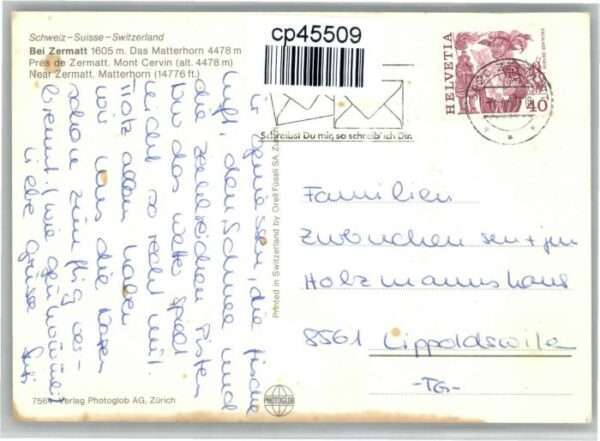 Schweiz-Suisse-Switzerland
Bei Zermatt 1605 m. Das Matterhorn 4478 m
Près de Zermatt. Mont Cervin (alt. 4478 m)
Near Zermatt. Matterhorn (14776 ft.)
cp45509
HELVETIA
40
Schreibst Du mir, so schreib ich Dir.
Wir geniessen, die frische
Luft, den Schnee und
die zahlreichen Pisten
Nur das Wetter spielt
nicht so recht mit.
Trotz allem haben
wir uns die Nasen
schon zünftig ver-
brennt!
Liebe Grüsse
Printed in Switzerland by Orell Füssli SA, Zürich
Familien
Zwbuchen sen + jun
Holzmannshaus
8561 Lippoldswilen
-TG-
7564 Verlag Photoglob AG, Zürich
PHOTOGLOB